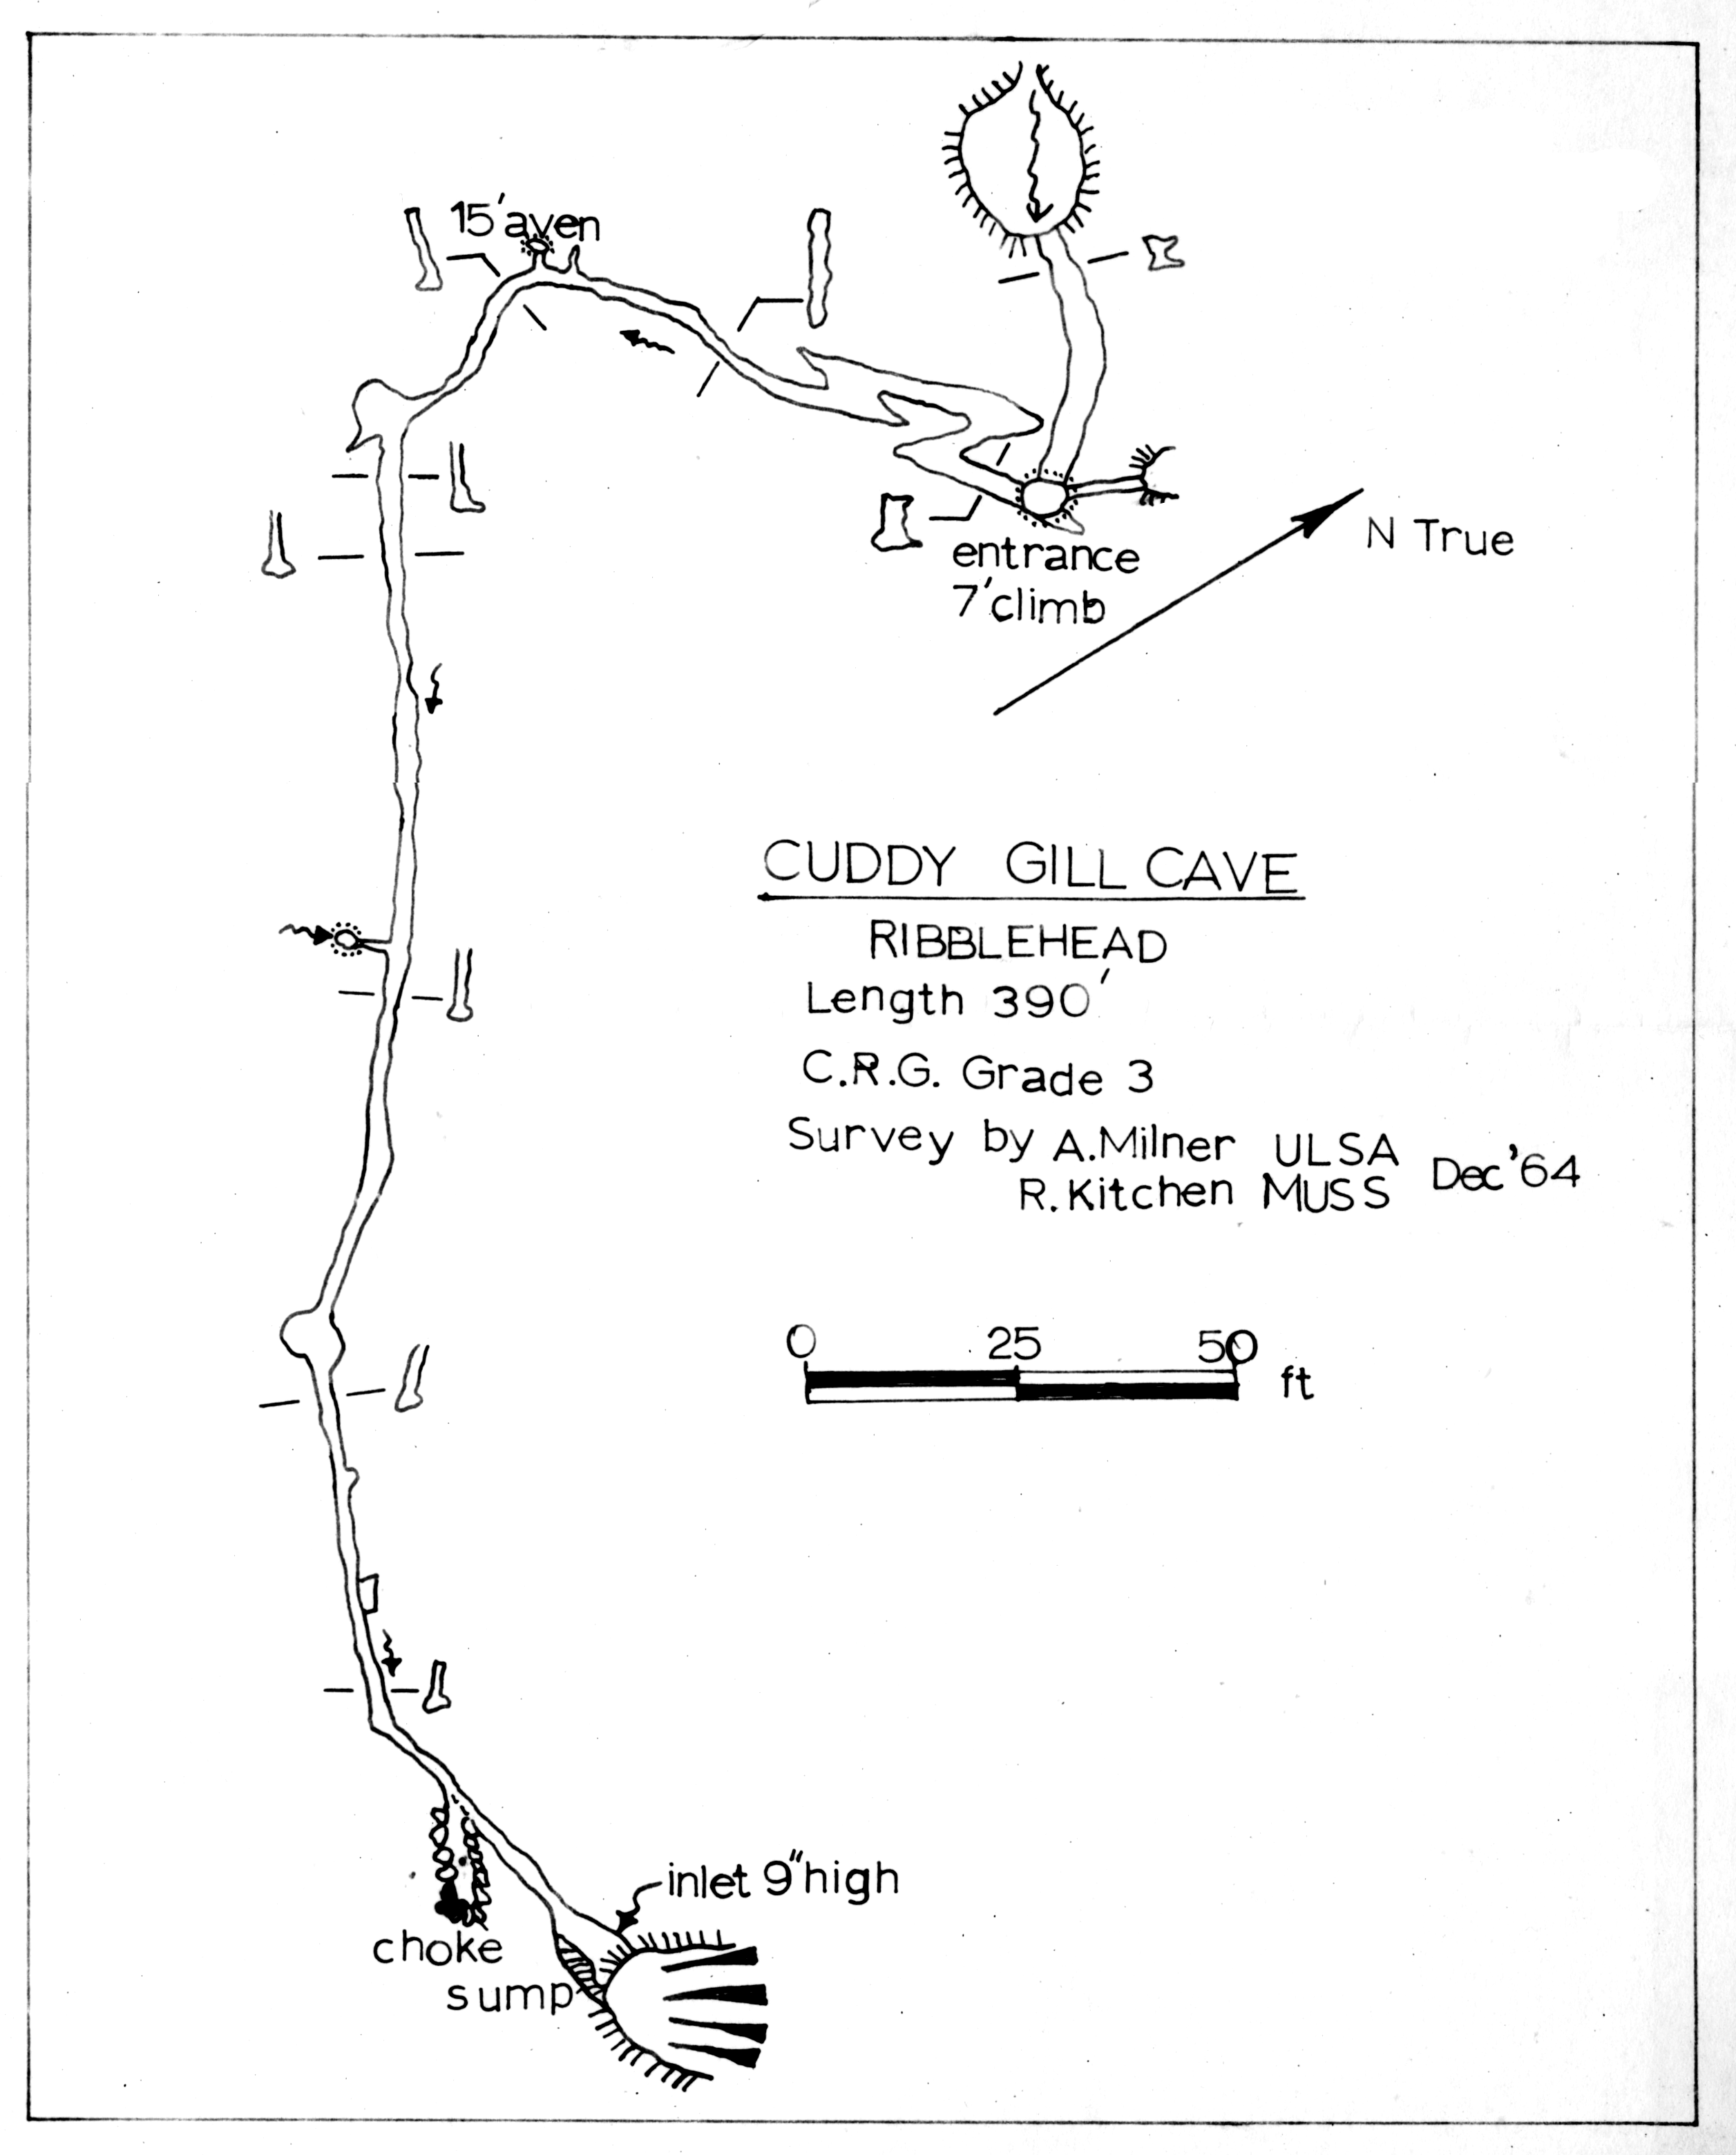 15' aven
entrance
7' climb
N True
CUDDY GILL CAVE
RIBBLEHEAD
Length 390'
C.R.G. Grade 3
Survey by A.Milner ULSA Dec '64
R.Kitchen MUSS
0 25 50 ft
inlet 9" high
choke
sump